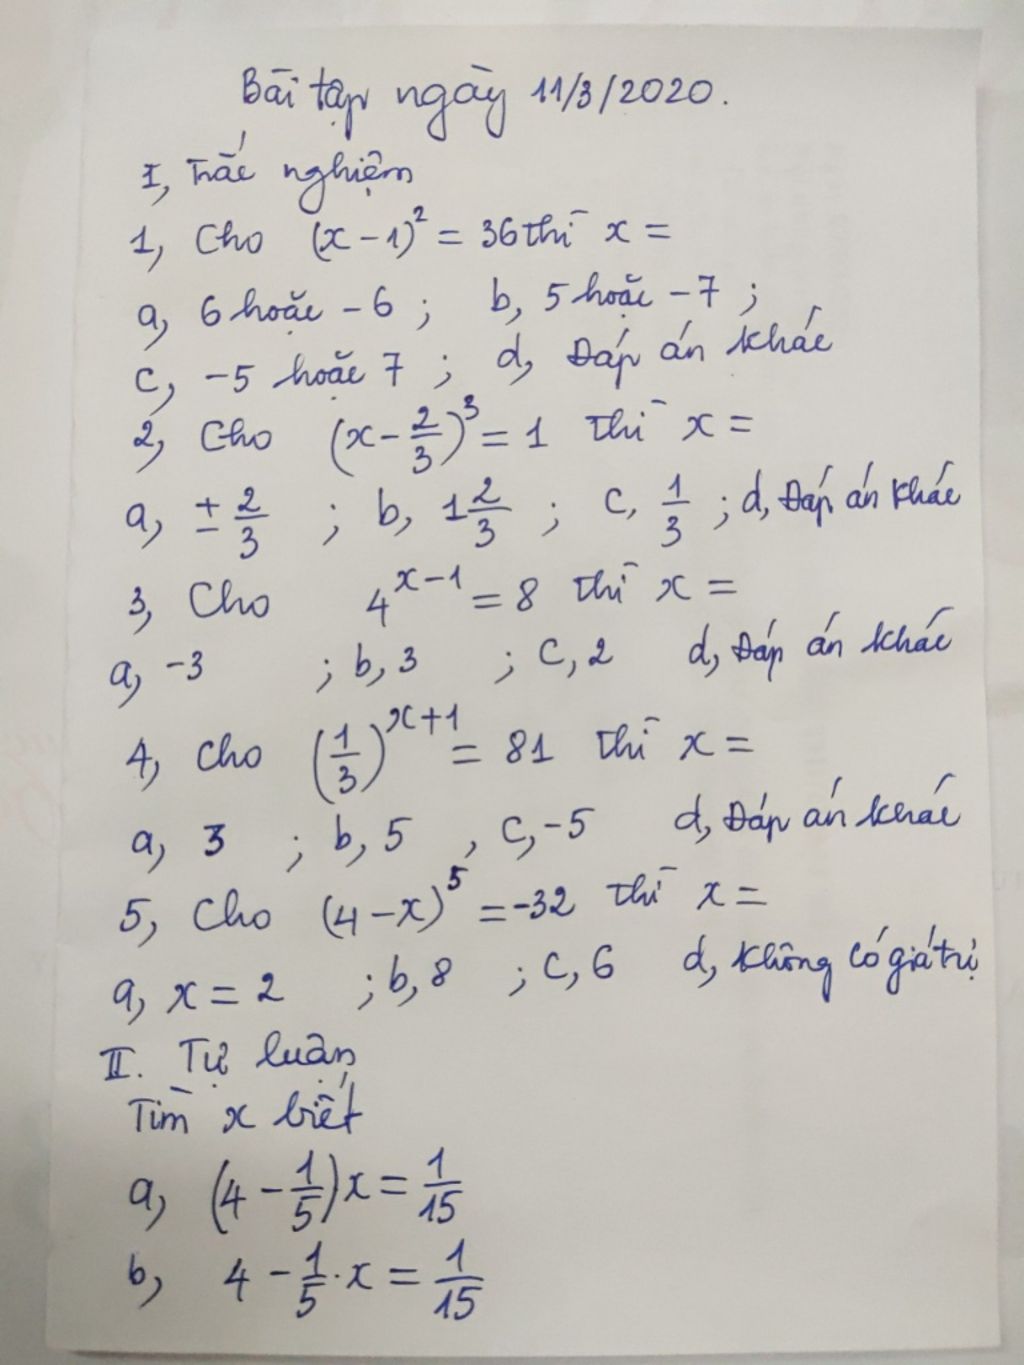 Bài tập ngày 11/3/2020.
I, Trắc nghiệm
1, Cho (x - 1)² = 36 thì x =
a, 6 hoặc - 6 ; b, 5 hoặc - 7 ;
c, -5 hoặc 7 ; d, Đáp án khác
2, Cho (x - 2/3)³ = 1 thì x =
a, ± 2/3 ; b, 1 2/3 ; c, 1/3 ; d, Đáp án khác
3, Cho 4^(x-1) = 8 thì x =
a, -3 ; b, 3 ; c, 2 d, Đáp án khác
4, Cho (1/3)^(x+1) = 81 thì x =
a, 3 ; b, 5 , c, -5 d, Đáp án khác
5, Cho (4 - x)⁵ = -32 thì x =
a, x = 2 ; b, 8 ; c, 6 d, Không có giá trị
II. Tự luận
Tìm x biết
a, (4 - 1/5)x = 1/15
b, 4 - 1/5 . x = 1/15